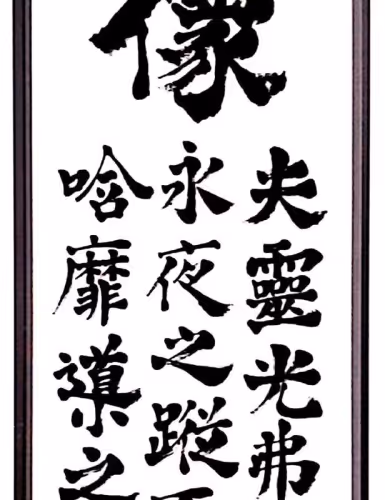 像
夫靈光弗
永夜之蹤
唅靡導之